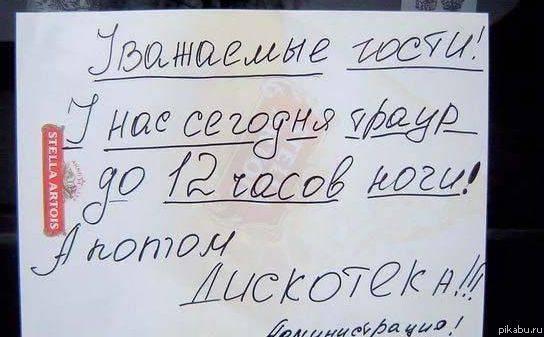 Уважаемые гости!
У нас сегодня траур
до 12 часов ночи!
А потом
Дискотека!!!
Администрация!
STELLA ARTOIS
pikabu.ru